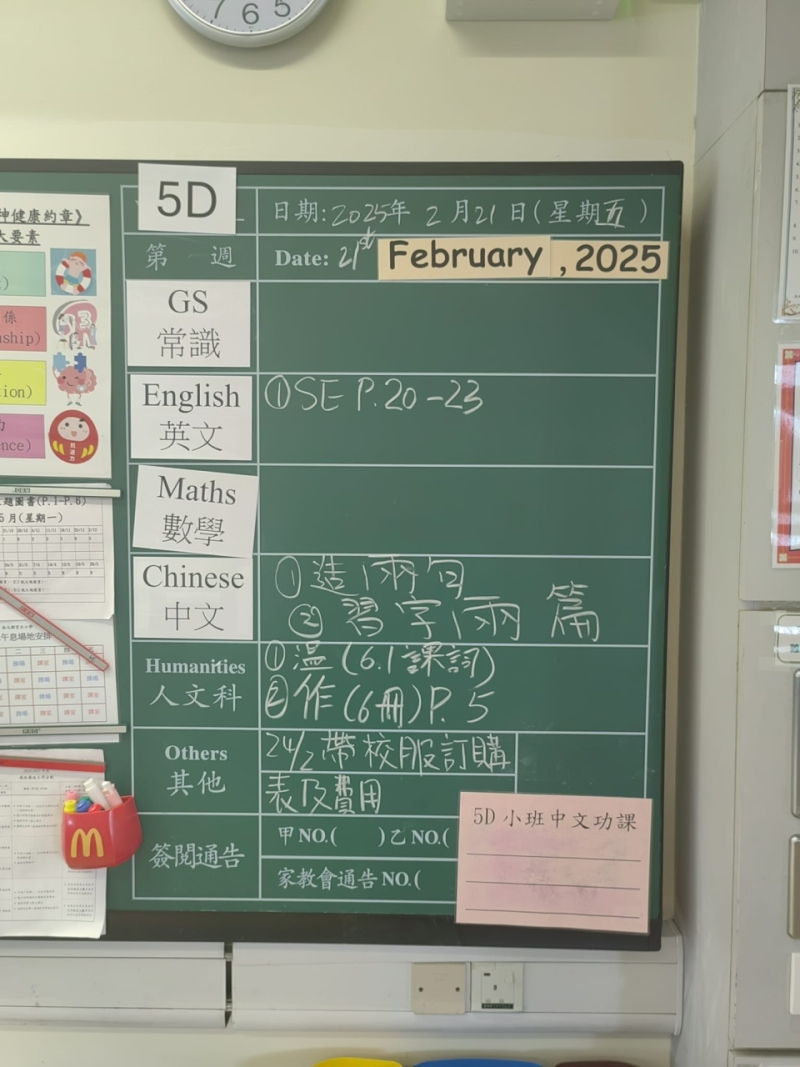 7 6 5
5D
日期:2025年 2月21日(星期五)
第 週
Date: 21st February , 2025
GS
常識
English
英文
①SE P.20-23
Maths
數學
Chinese
中文
①造兩句
②習字兩篇
Humanities
人文科
①溫(6.1課詞)
②作(6冊)P.5
Others
其他
24/2 帶校服訂購
表及費用
簽閱通告
甲NO.( )乙NO.(
家教會通告NO.(
5D 小班中文功課
神健康約章》
大要素
係
ship)
tion)
力
ence)
題圖書(P.1-P.6)
5月(星期一)
午息場地安排